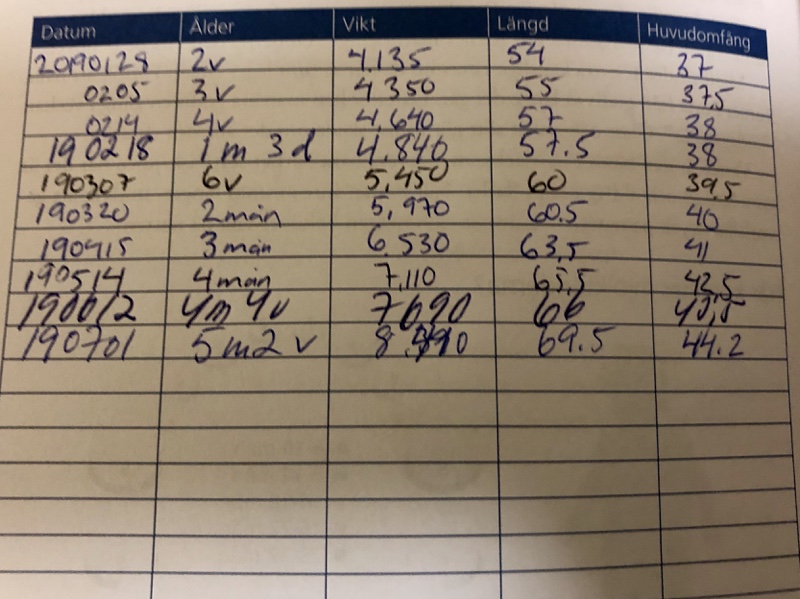 Datum Ålder Vikt Längd Huvudomfång
20190128 2v 4.135 54 37
0205 3v 4350 55 37,5
0214 4v 4.640 57 38
190218 1m 3d 4.840 57.5 38
190307 6v 5,450 60 39,5
190320 2mån 5,970 60.5 40
190415 3mån 6.530 63,5 41
190514 4mån 7,110 65,5 42,5
190612 4m 4v 7690 66
190701 5m2v 69.5 44.2